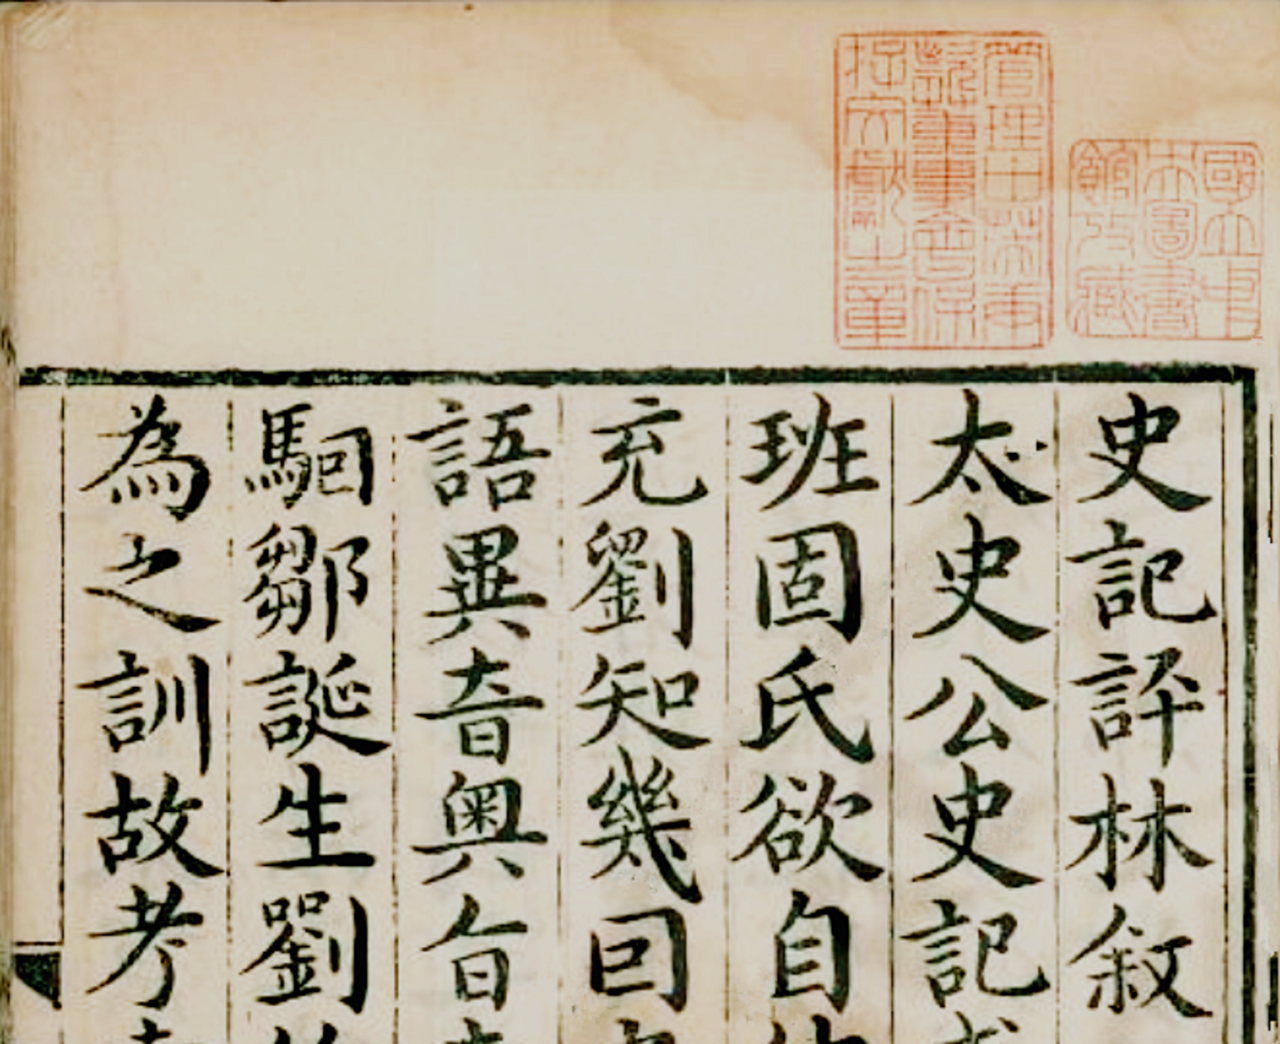 國立中央圖書館收藏
管理中英庚款董事會保存文獻之章
史記評林敘
太史公史記
班固氏欲自
充劉知幾回
語異音奧旨
駰鄒誕生劉
為之訓故考